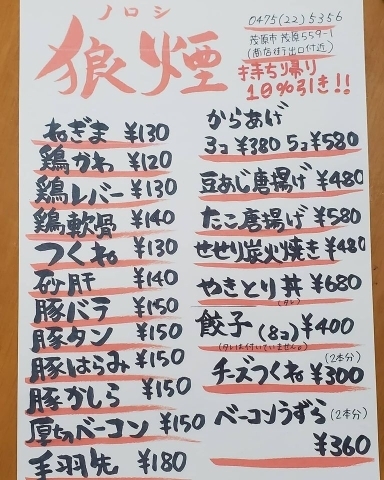 ノロシ
狼煙
0475(22)5356
茂原市茂原559-1
(商店街出口付近)
お持ち帰り
10%引き!!
ねぎま ¥130
鶏かわ ¥120
鶏レバー ¥130
鶏軟骨 ¥140
つくね ¥130
砂肝 ¥140
豚バラ ¥150
豚タン ¥150
豚はらみ ¥150
豚かしら ¥150
厚切ベーコン ¥150
手羽先 ¥180
からあげ
3コ ¥380 5コ ¥580
豆あじ唐揚げ ¥480
たこ唐揚げ ¥580
せせり炭火焼き ¥480
やきとり丼 ¥680
(タレ)
餃子(8コ) ¥400
(タレは付いていません。)
(2本分)
チーズつくね ¥300
ベーコンうずら(2本分)
¥360